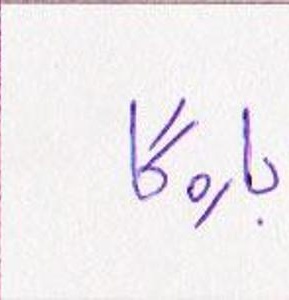 باره گا